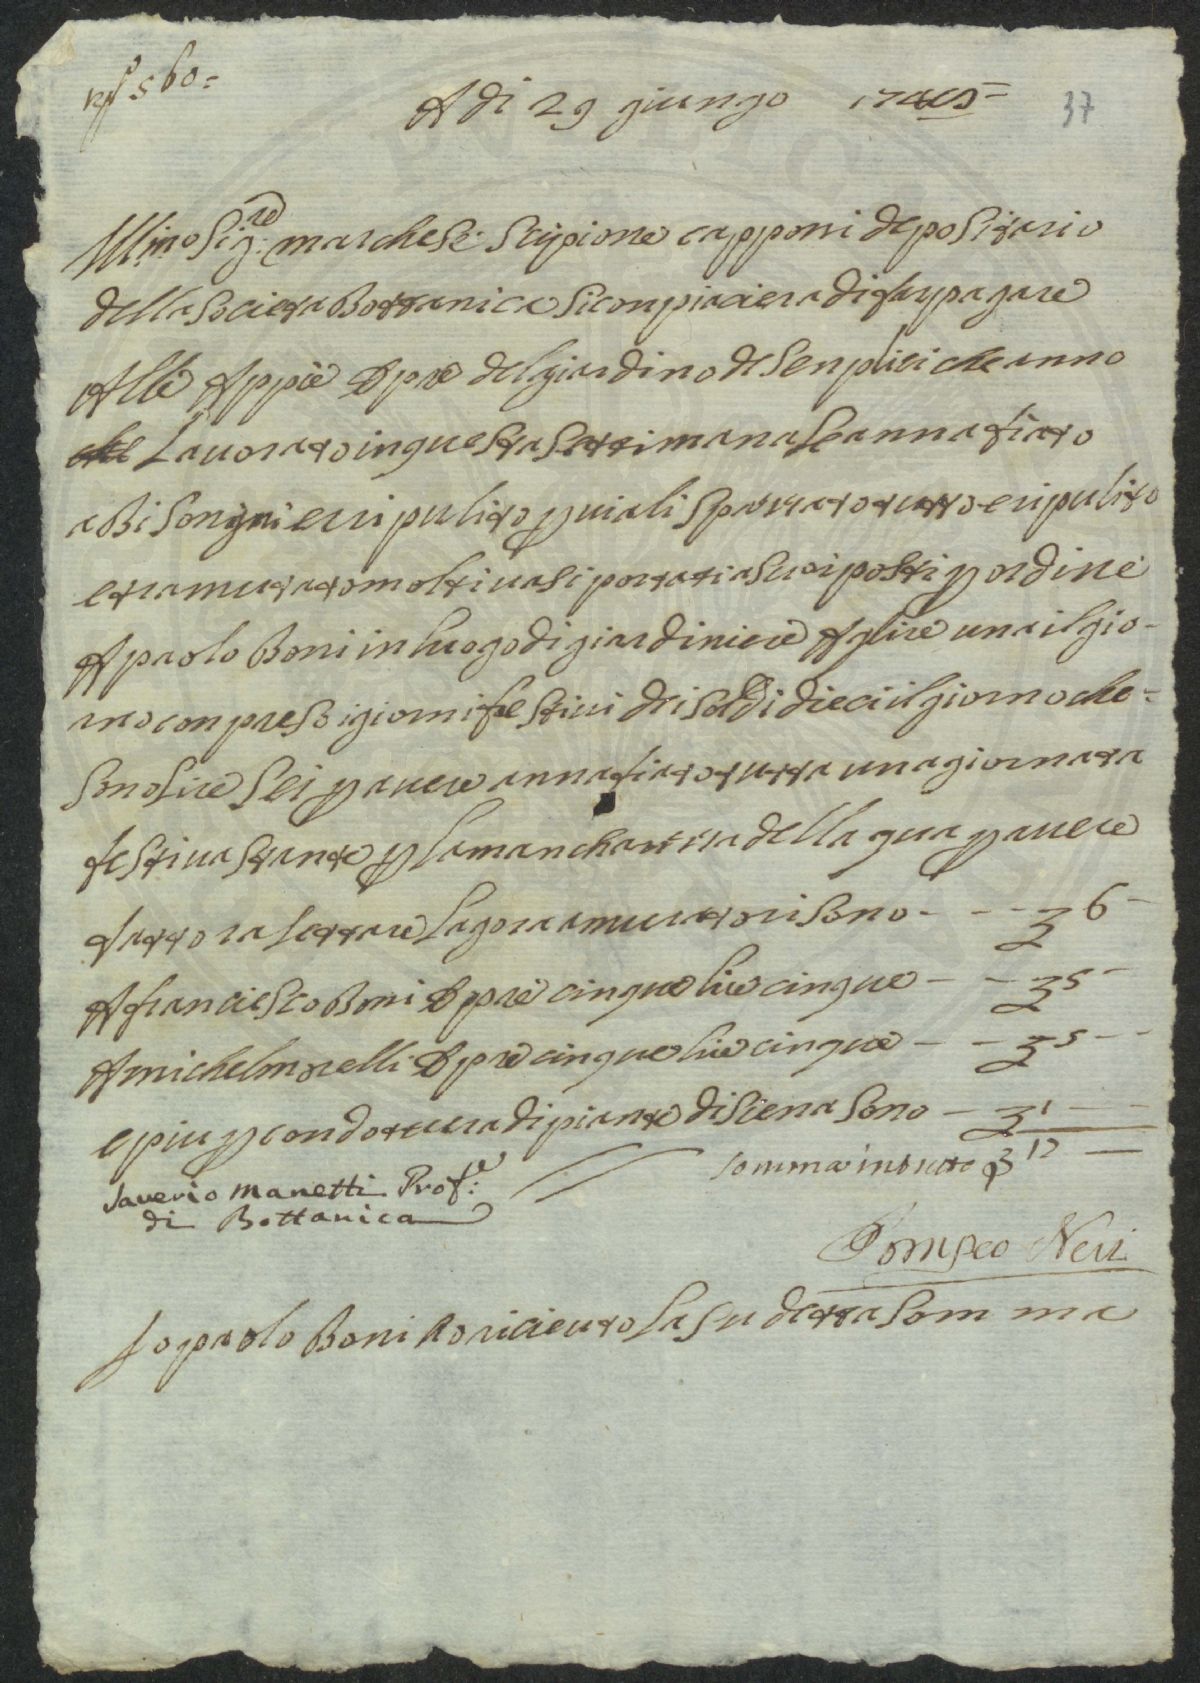 560=
A di 29 giungo 37
Ill.mo Sig.re marchese Scipione capponi depositario
della Societa Bottanica Si conpiaciera di far pagare
Alle Appie Opre del giardino de Senplici che anno
che Lauorato in questa Settimana Se annafiato
a Bi Songni e ri pulito p uiali Spazzato tutto e ripulito
e tramutato molti uasi portati a suoi posti p ordine
A paolo Boni in luogo di giardiniere A glire una il gio-
rno conpreso i giorni festiui dei soldi dieci il giorno che=
Sono Lire Sei p auere annafiato tutta una giornata
festiua stante p la manchanzza della qua p auere
fatto ra Settare la gora a muratori Sono - - - 6 -
A franciesco Boni Opre cinque lire cinque - - 5 -
A michel morelli Opre cinque lire cinque - - 5 - -
e piu p condottura di piante di Siena Sono - 1 - -
Somma in tutto 17 -
Saverio Manetti Prof.e
di Bottanica
Pompeo Neri
Io paolo Boni Ho riceuuto La Su detta Som ma